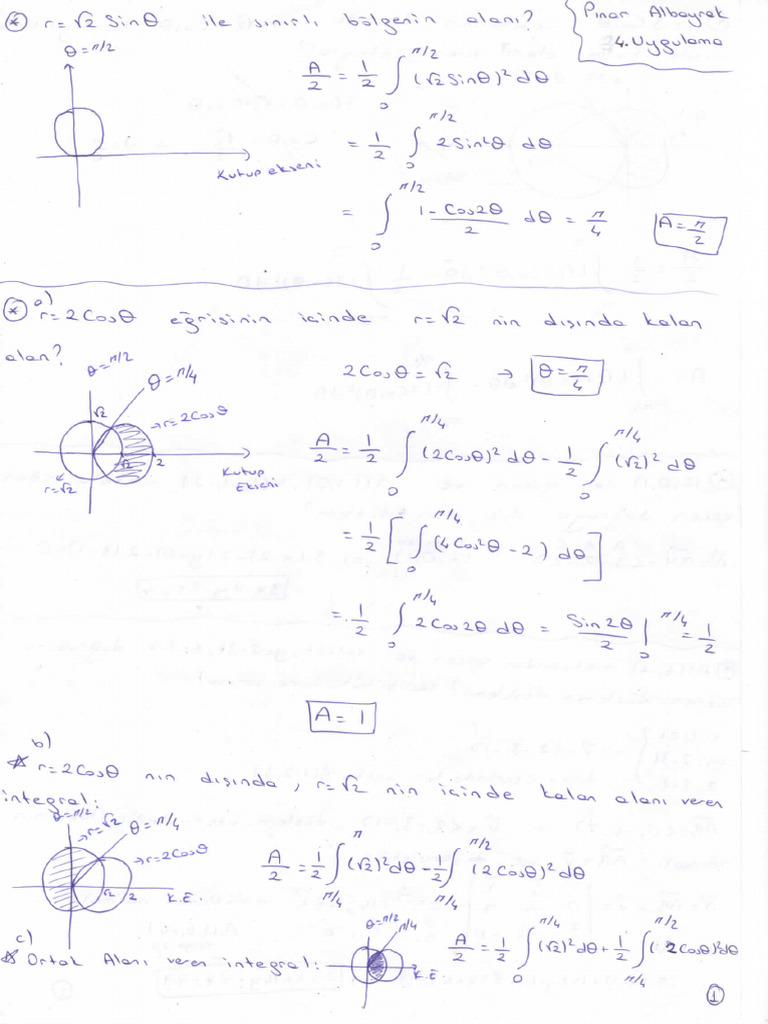 * r = √2 Sinθ ile sınırlı bölgenin alanı?
Pınar Albayrak
4. Uygulama
θ = π/2
Kutup ekseni
A/2 = 1/2 ∫₀^{π/2} (√2 Sinθ)² dθ
= 1/2 ∫₀^{π/2} 2Sin²θ dθ
= ∫₀^{π/2} (1 - Cos2θ)/2 dθ = π/4
A = π/2
* a) r = 2Cosθ eğrisinin içinde r = √2 nin dışında kalan
alan?
2Cosθ = √2 → θ = π/4
θ = π/2
θ = π/4
√2
→ r = 2Cosθ
√2
2
Kutup
Ekseni
r = √2
A/2 = 1/2 ∫₀^{π/4} (2Cosθ)² dθ - 1/2 ∫₀^{π/4} (√2)² dθ
= 1/2 [ ∫₀^{π/4} (4Cos²θ - 2) dθ ]
= 1/2 ∫₀^{π/4} 2Cos2θ dθ = Sin2θ/2 |₀^{π/4} = 1/2
A = 1
b)
* r = 2Cosθ nın dışında, r = √2 nin içinde kalan alanı veren
integral:
θ = π/2
→ r = √2
θ = π/4
→ r = 2Cosθ
√2
2
K.E
A/2 = 1/2 ∫_{π/4}^{π} (√2)² dθ - 1/2 ∫_{π/4}^{π/2} (2Cosθ)² dθ
c)
* Ortak Alanı veren integral:
θ = π/2
π/4
K.E
A/2 = 1/2 ∫₀^{π/4} (√2)² dθ + 1/2 ∫_{π/4}^{π/2} (2Cosθ)² dθ
1